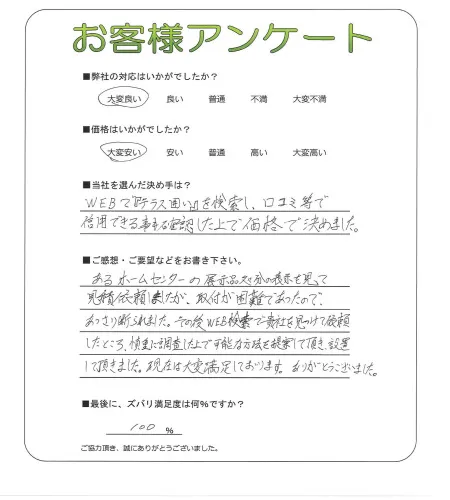 お客様アンケート
■弊社の対応はいかがでしたか?
大変良い 良い 普通 不満 大変不満
■価格はいかがでしたか?
大変安い 安い 普通 高い 大変高い
■当社を選んだ決め手は?
WEBで『テラス囲い』を検索し、口コミ等で
信用できる事を確認した上で価格で決めました。
■ご感想・ご要望などをお書き下さい。
あるホームセンターの展示品処分の表示を見って
見積依頼しましたが、取付が困難であったので、
あっさり断られました。その後WEB検索で貴社を見つけて依頼
したところ、慎重に調査した上で可能な方法を提案して頂き、設置
して頂きました。現在は大変満足しております。ありがとうございました。
■最後に、ズバリ満足度は何%ですか?
100 %
ご協力頂き、誠にありがとうございました。